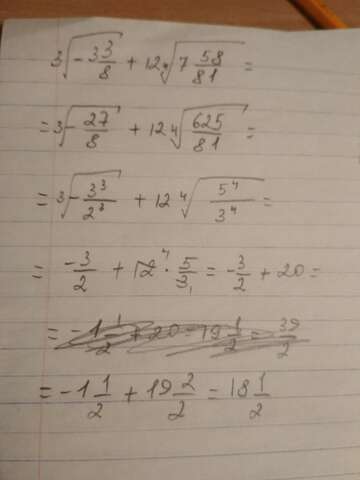 ∛(-3 3/8) + 12 ∜(7 58/81) =
= ∛(-27/8) + 12 ∜(625/81) =
= ∛(-3³/2³) + 12 ∜(5⁴/3⁴) =
= -3/2 + 12⁴ · 5/3₁ = -3/2 + 20 =
= -1 1/2 + 20 = 19 1/2 = 39/2
= -1 1/2 + 19 2/2 = 18 1/2